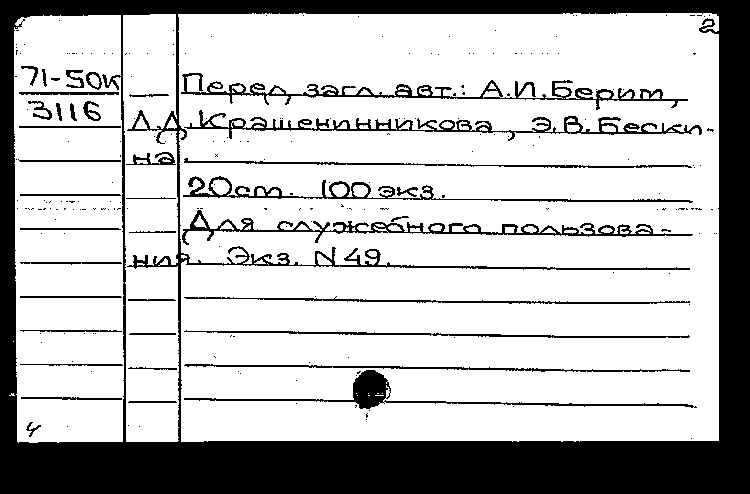 2
71-50к
3116
Перед загл. авт.: А.И.Берим,
Л.Д.Крашенинникова, Э.В.Бески-
на.
20см. 100 экз.
Для служебного пользова-
ния. Экз. N 49.
4